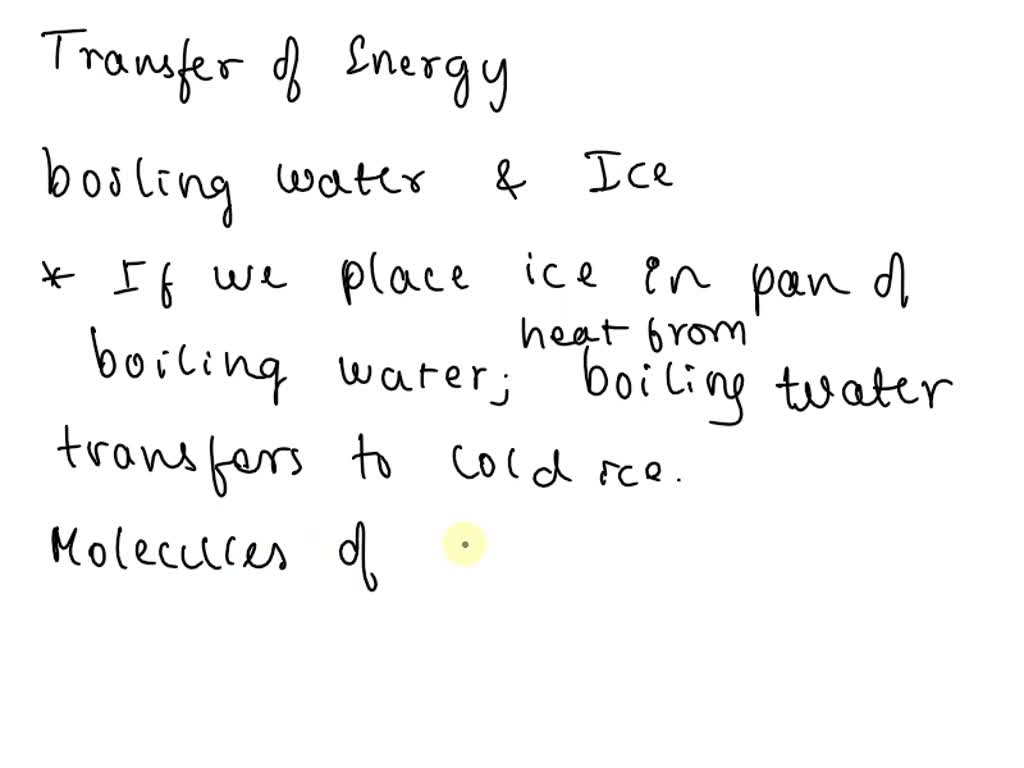 Transfer of Energy
boiling water & Ice
* If we place ice in pan of
boiling water; heat from boiling water
transfers to cold ice.
Molecules of